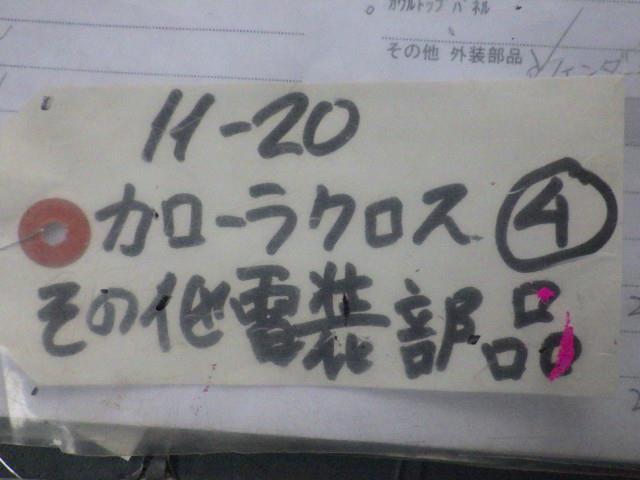 カウルトップ パネル
その他 外装部品
11-20
カローラクロス ④
その他電装部品